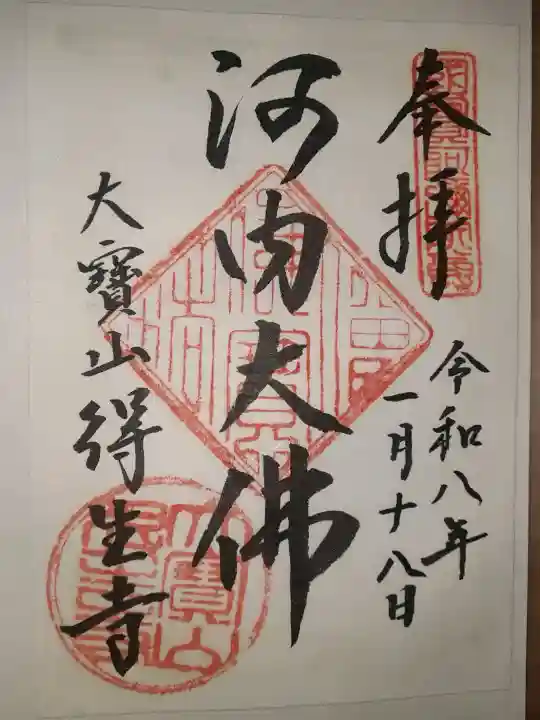 奉拝
令和八年
一月十八日
河内大佛
大寳山得生寺